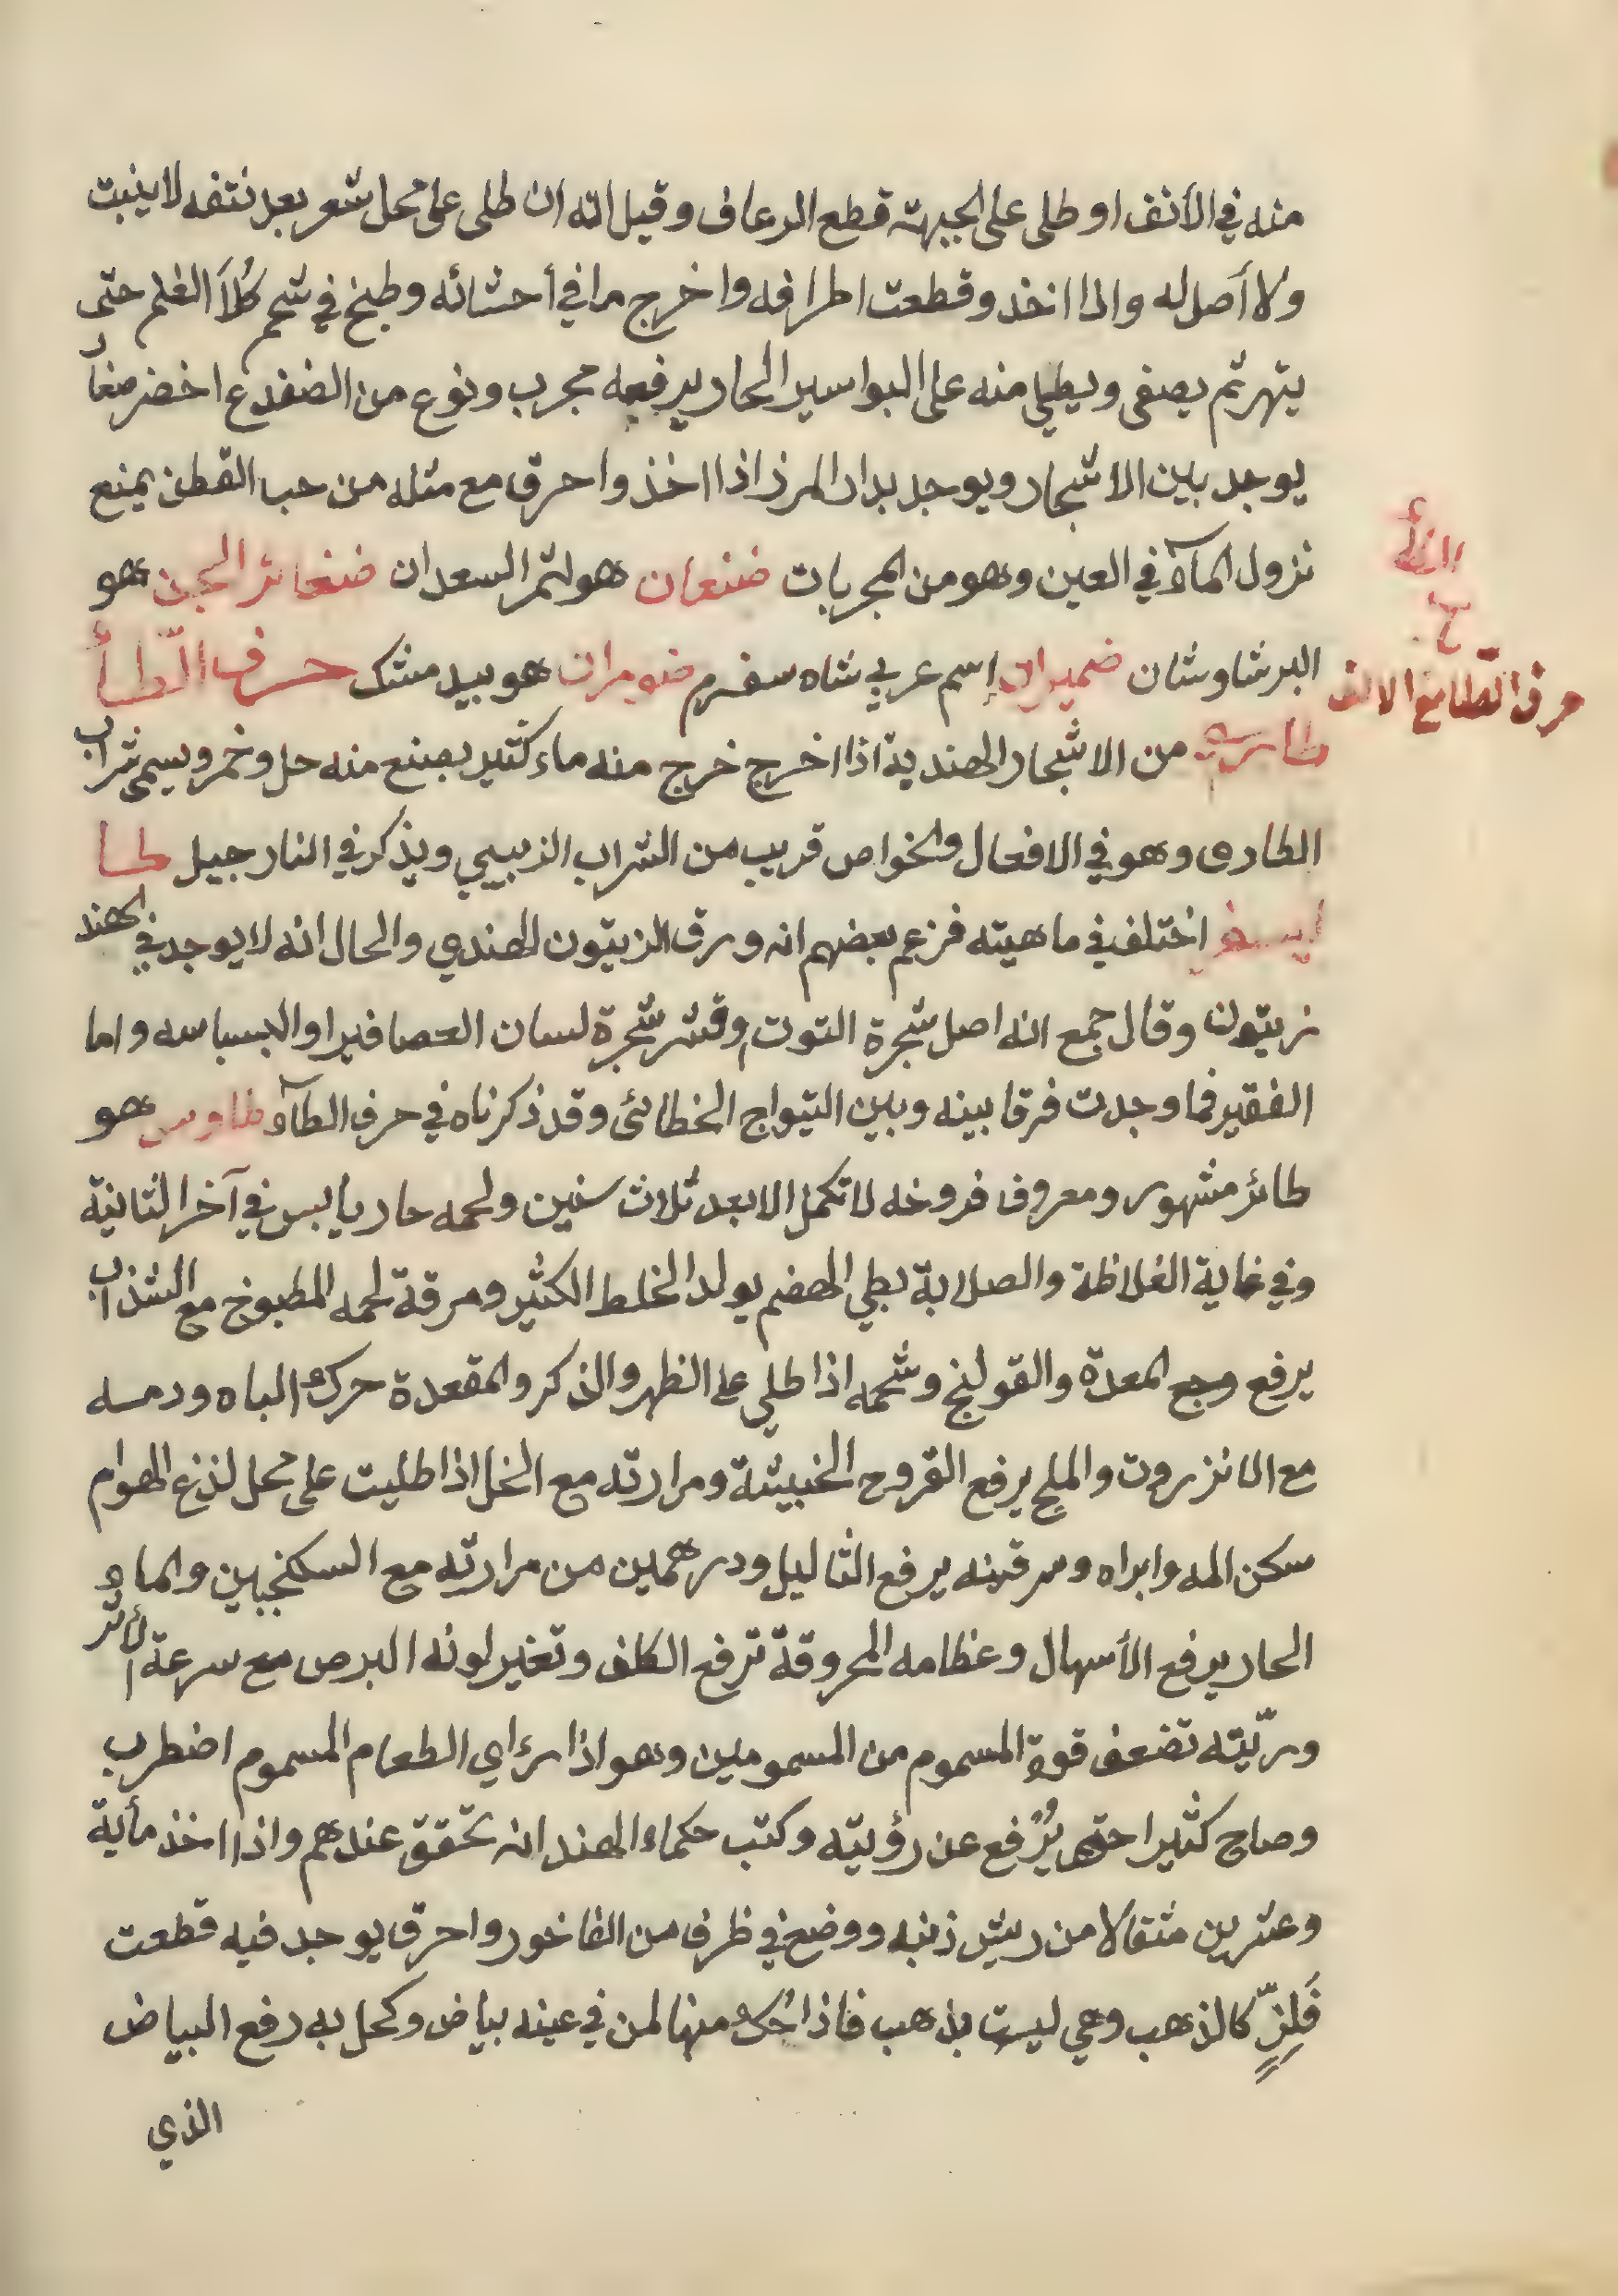 منه في الأنف او طلى على الجبهة قطع الرعاف وقيل انه ان طلى على محل شعر بعد نتفه لا ينبت
ولا أصل له واذا اخذ وقطعت اطرافه واخرج ما في أحشائه وطبخ في شحم كُلاَ الغلم حتى
يتهر ثم يصفى ويطلى منه على البواسير الحار يرفعه مجرب ونوع من الضفدع اخضر
يوجد بين الاشجار ويوجد بدار المرز اذا اخذ واحرق مع مثله من حب القطن يمنع
نزول المآء في العين وهو من المجربات ضنعان هو لثمر السعدان ضغائر الجن هو
البرشاوشان ضميران إسم عربي شاه سفرم ضومران هو بيد مشك حرف الطأ
حرف الطا مع الالف
طاري من الاشجار الهندية اذا اخرج خرج منه ماء كثير يصنع منه خل وخمر ويسمى شراب
الطارى وهو في الافعال والخواص قريب من الشراب الزبيبي ويذكر في النارجيل طا
ليسفر اختلف في ماهيته فزعم بعضهم انه ورق الزيتون الهندي والحال انه لا يوجد في الهند
زيتون وقال جمع انه اصل شجرة التوت وقشر شجرة لسان العصافير او البسباسه واما
الفقير فما وجدت فرقا بينه وبين التيواج الخطائى وقد ذكرناه في حرف الطآء طاوس هو
طائر مشهور ومعروف فروخه لا تكمل الا بعد ثلاث سنين ولحمه حار يابس في آخر الثانية
وفي غاية الغلاظة والصلابة بطي الهضم يولد الخلط الكثير ومرقة لحمه المطبوخ مع الشذاب
يرفع وجع المعدة والقولنج وشحمه اذا طلي على الظهر والذكر والمقعدة حرك الباه ودمه
مع الانزروت والملح يرفع القروح الخبيثة ومرارته مع الخل اذا طليت على محل لذع الهوام
سكن المه وابراه وسرقينه يرفع الثاليل ودرهمين من مرارته مع السكنجبين والماء
الحار يرفع الأسهال وعظامه المحروقة ترفع الكلف وتغير لونه البرص مع سرعة الأثر
وريّته تضعف قوة المسموم من المسمومين وهو اذا رءاي الطعام المسموم اضطرب
وصاح كثيرا حتى يُرْفع عن رؤيته وكتب حكماء الهند انه تحقق عندهم واذا اخذ مأية
وعشرين مثقالا من ريش ذنبه ووضع في ظرف من الفاخور واحرق يوجد فيه قطعت
فَلِزٍّ كالذهب وهي ليست بذهب فاذا حُك منها لمن في عينه بياض وكحل به رفع البياض
الذي